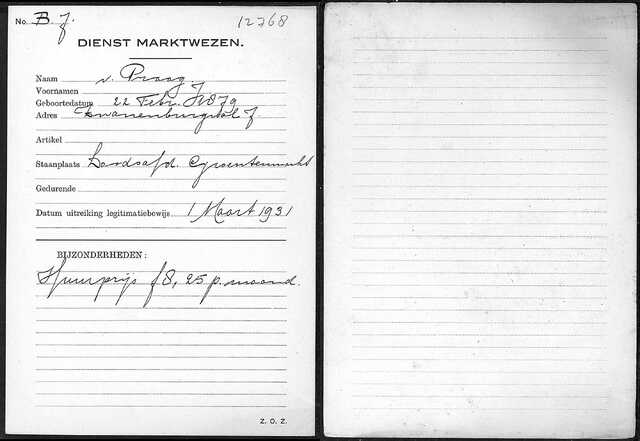 No. B. J. 12768
DIENST MARKTWEZEN.
Naam v. Praag.
Voornamen J.
Geboortedatum 22 Febr. 1879
Adres Zwanenburgwal
Artikel
Staanplaats Groentenmarkt
Gedurende
Datum uitreiking legitimatiebewijs 1 Maart 1931
BIJZONDERHEDEN:
Huurprijs f 8,25 p. maand.
Z. O. Z.